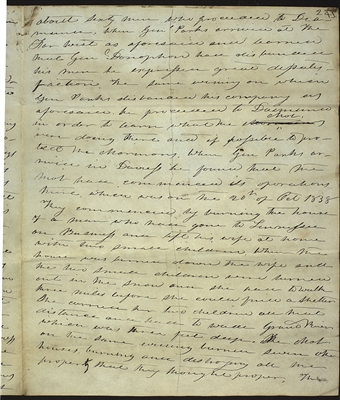 about sixty men who proceeded to Dia
mance. When Gen Parks arrived at the
Far West as aforesaid and learned
that Gen Donophan had disbanded
his men he expressed great dissatis
faction. The same evening on which
Gen Parks disbanded his company as
aforesaid he proceeded to Daimande
in order to learn what the mob
were doing there and if possible to pro
tect the Mormons. When Gen Parks ar
rived in Daviess he found that the
mob had commenced its operations
there, which was on the 20th of Oct 1838
They commenced by burning the house
of a man who had gone to Tennessee
on business and left his wife at home
with two small children. When the
house was burned down the wife and
the two small children were turned
out in the snow and she had to walk
three miles before she could find a shelter
She carried her two children all that
distance and had to wade Grand River
which was three feet deep. The mob
on the same evening burned seven other
houses, burning and destroying all the
property that they thought proper. The